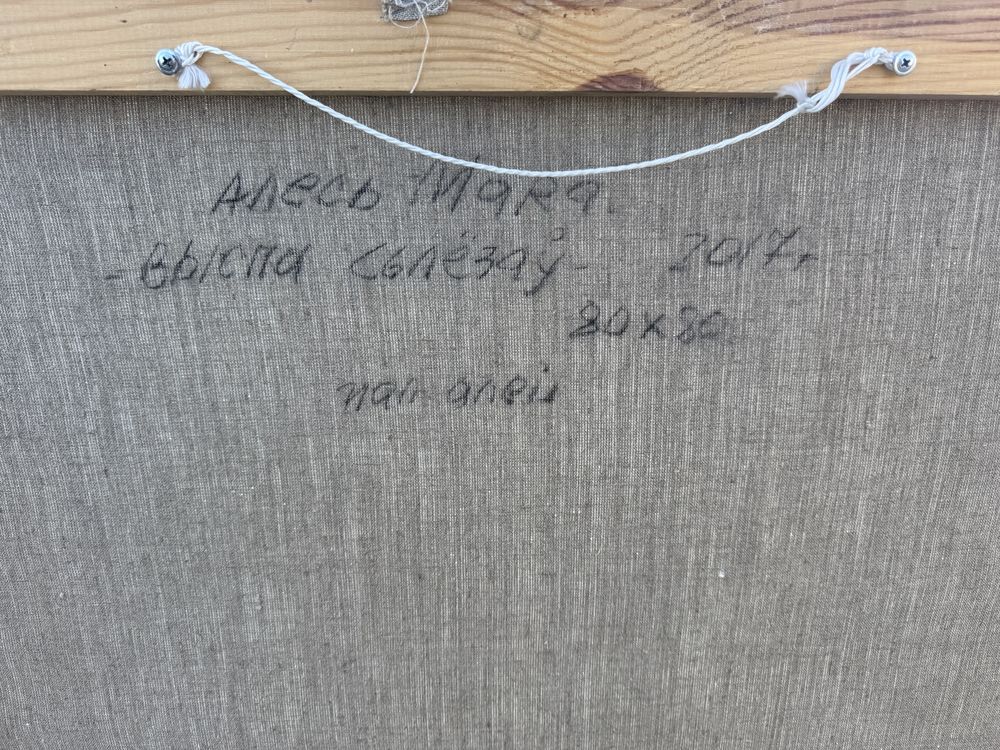 Алесь Мара.
-выспа сьлёзаў- 2017.
80 х 80
пал. алей